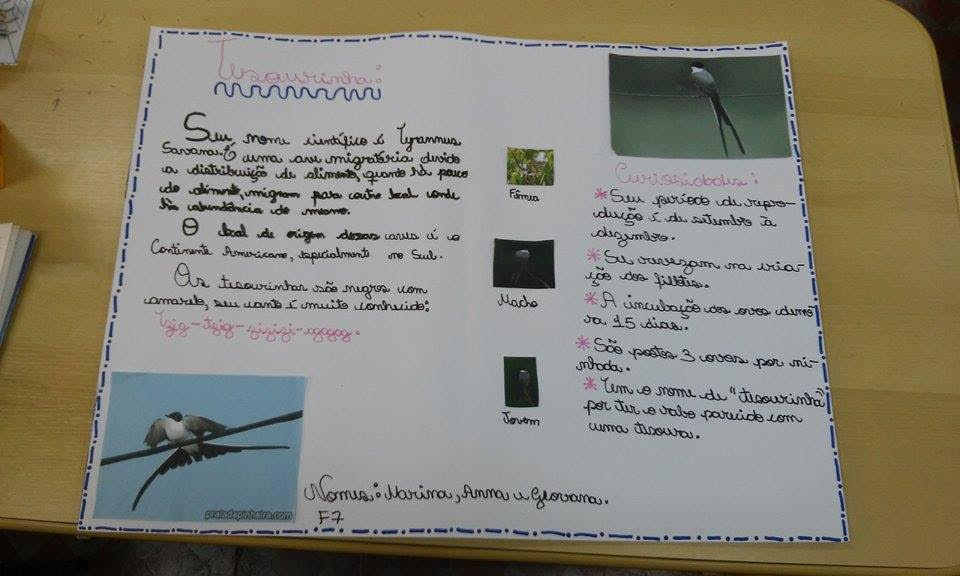 Tesourinha:
Seu nome científico é Tyrannus
Savana. É uma ave migratória devido
a distribuição de alimento, quando há pouco
do alimento, migram para outro local onde
há abundância do mesmo.
O local de origem dessas aves é o
Continente Americano, especialmente no Sul.
As tesourinhas são negras com
amarelo, seu canto é muito conhecido:
Tzig-tzig-zizizi-
Fêmea
Macho
Jovem
Curiosidades:
* Seu período de repro-
dução é de setembro à
dezembro.
* Se revezam na cria-
ção dos filhotes.
* A incubação dos ovos demo
ra 15 dias.
* São postos 3 ovos por ni-
nhada.
* Tem o nome de "tesourinha"
por ter o rabo parecido com
uma tesoura.
praiadepinheira.com
Nomes: Marina, Anna e Geovana.
F7